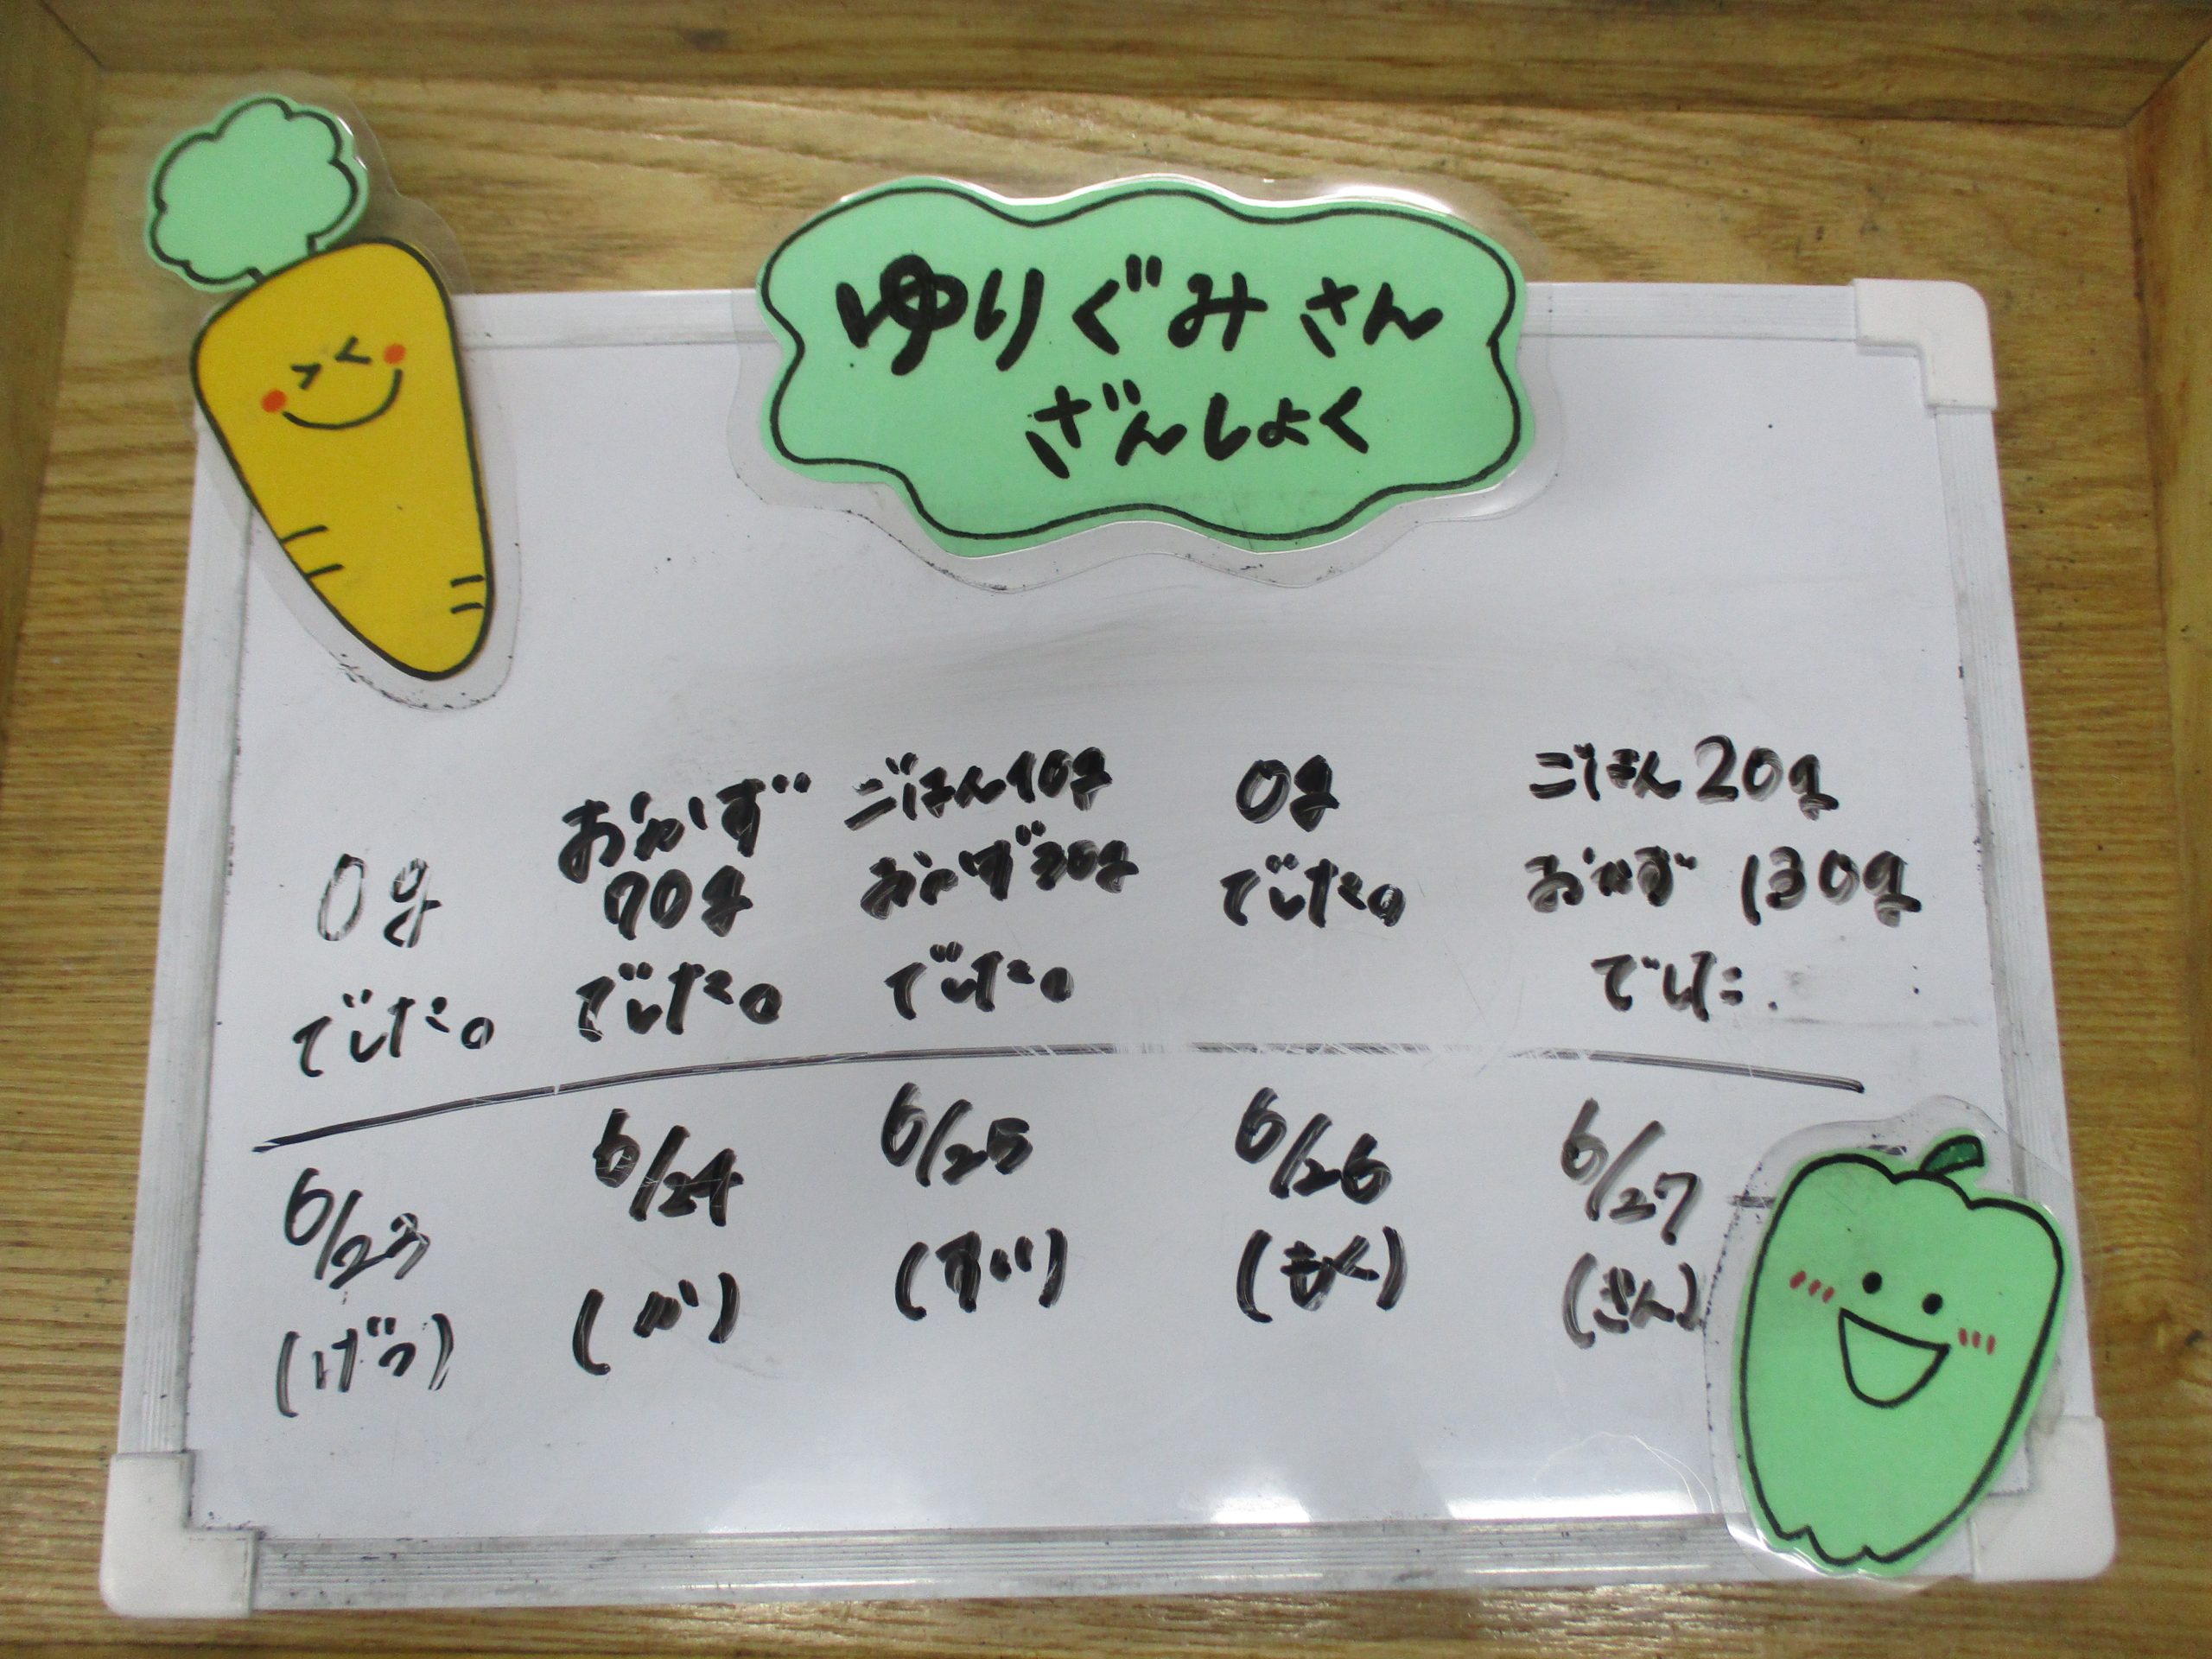 ゆりぐみさん
ざんしょく
0g
でした。
6/23
(げつ)
おかず
70g
でした。
6/24
(か)
ごはん10g
おかず30g
でした。
6/25
(すい)
0g
でした。
6/26
(もく)
ごはん20g
おかず 130g
でした.
6/27
(きん)